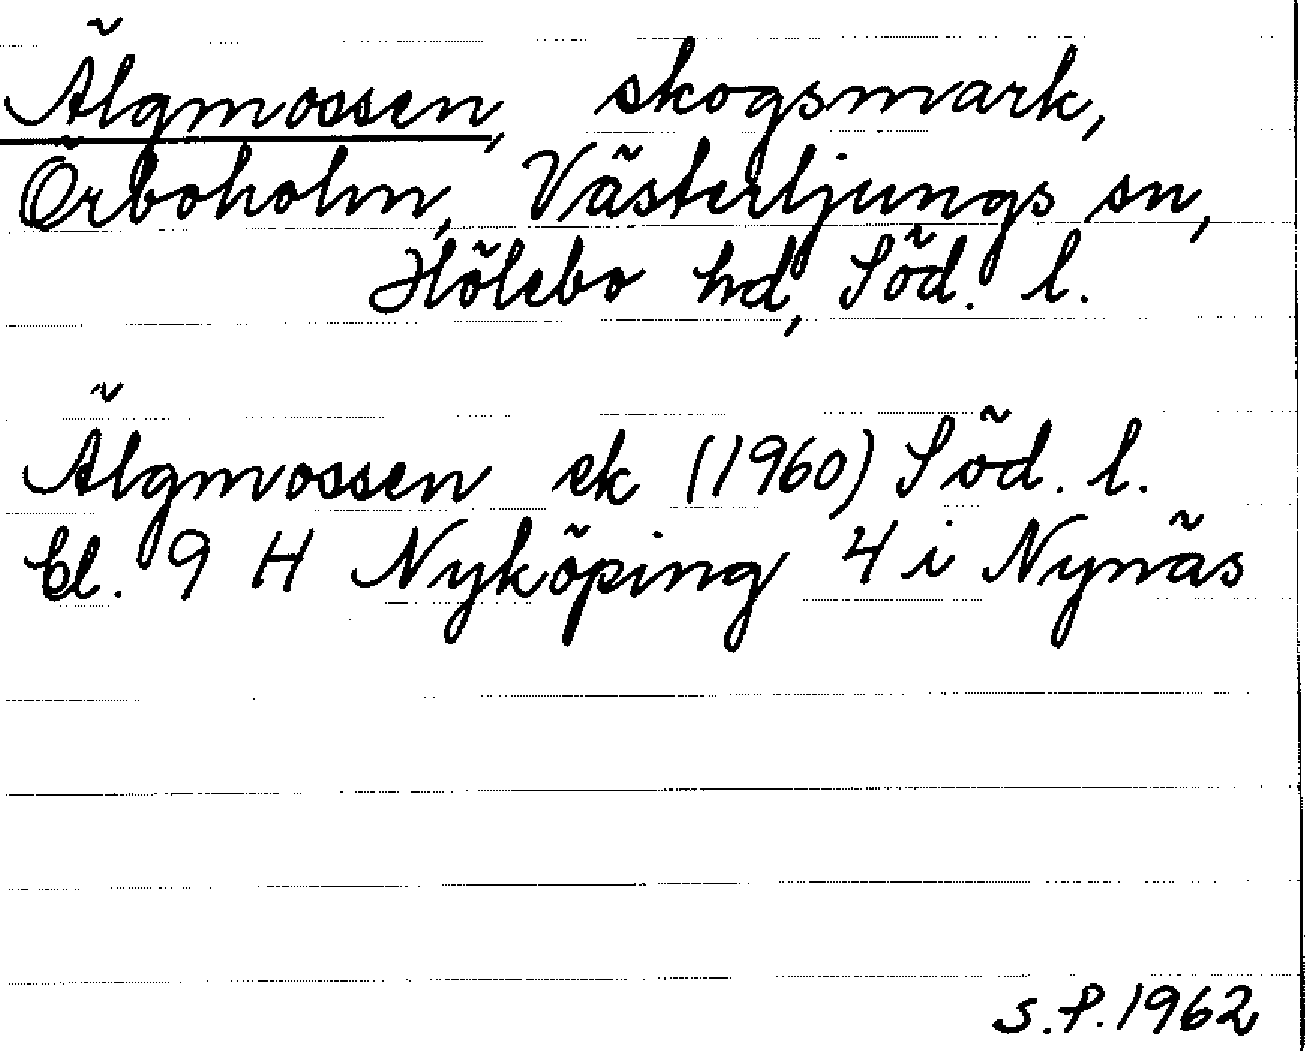 Älgmossen, skogsmark,
Örboholm, Västerljungs sn,
Hölebo hd, Söd. l.
Älgmossen ek (1960) Söd. l.
bl. 9 H Nyköping 4 i Nynäs
S.P.1962